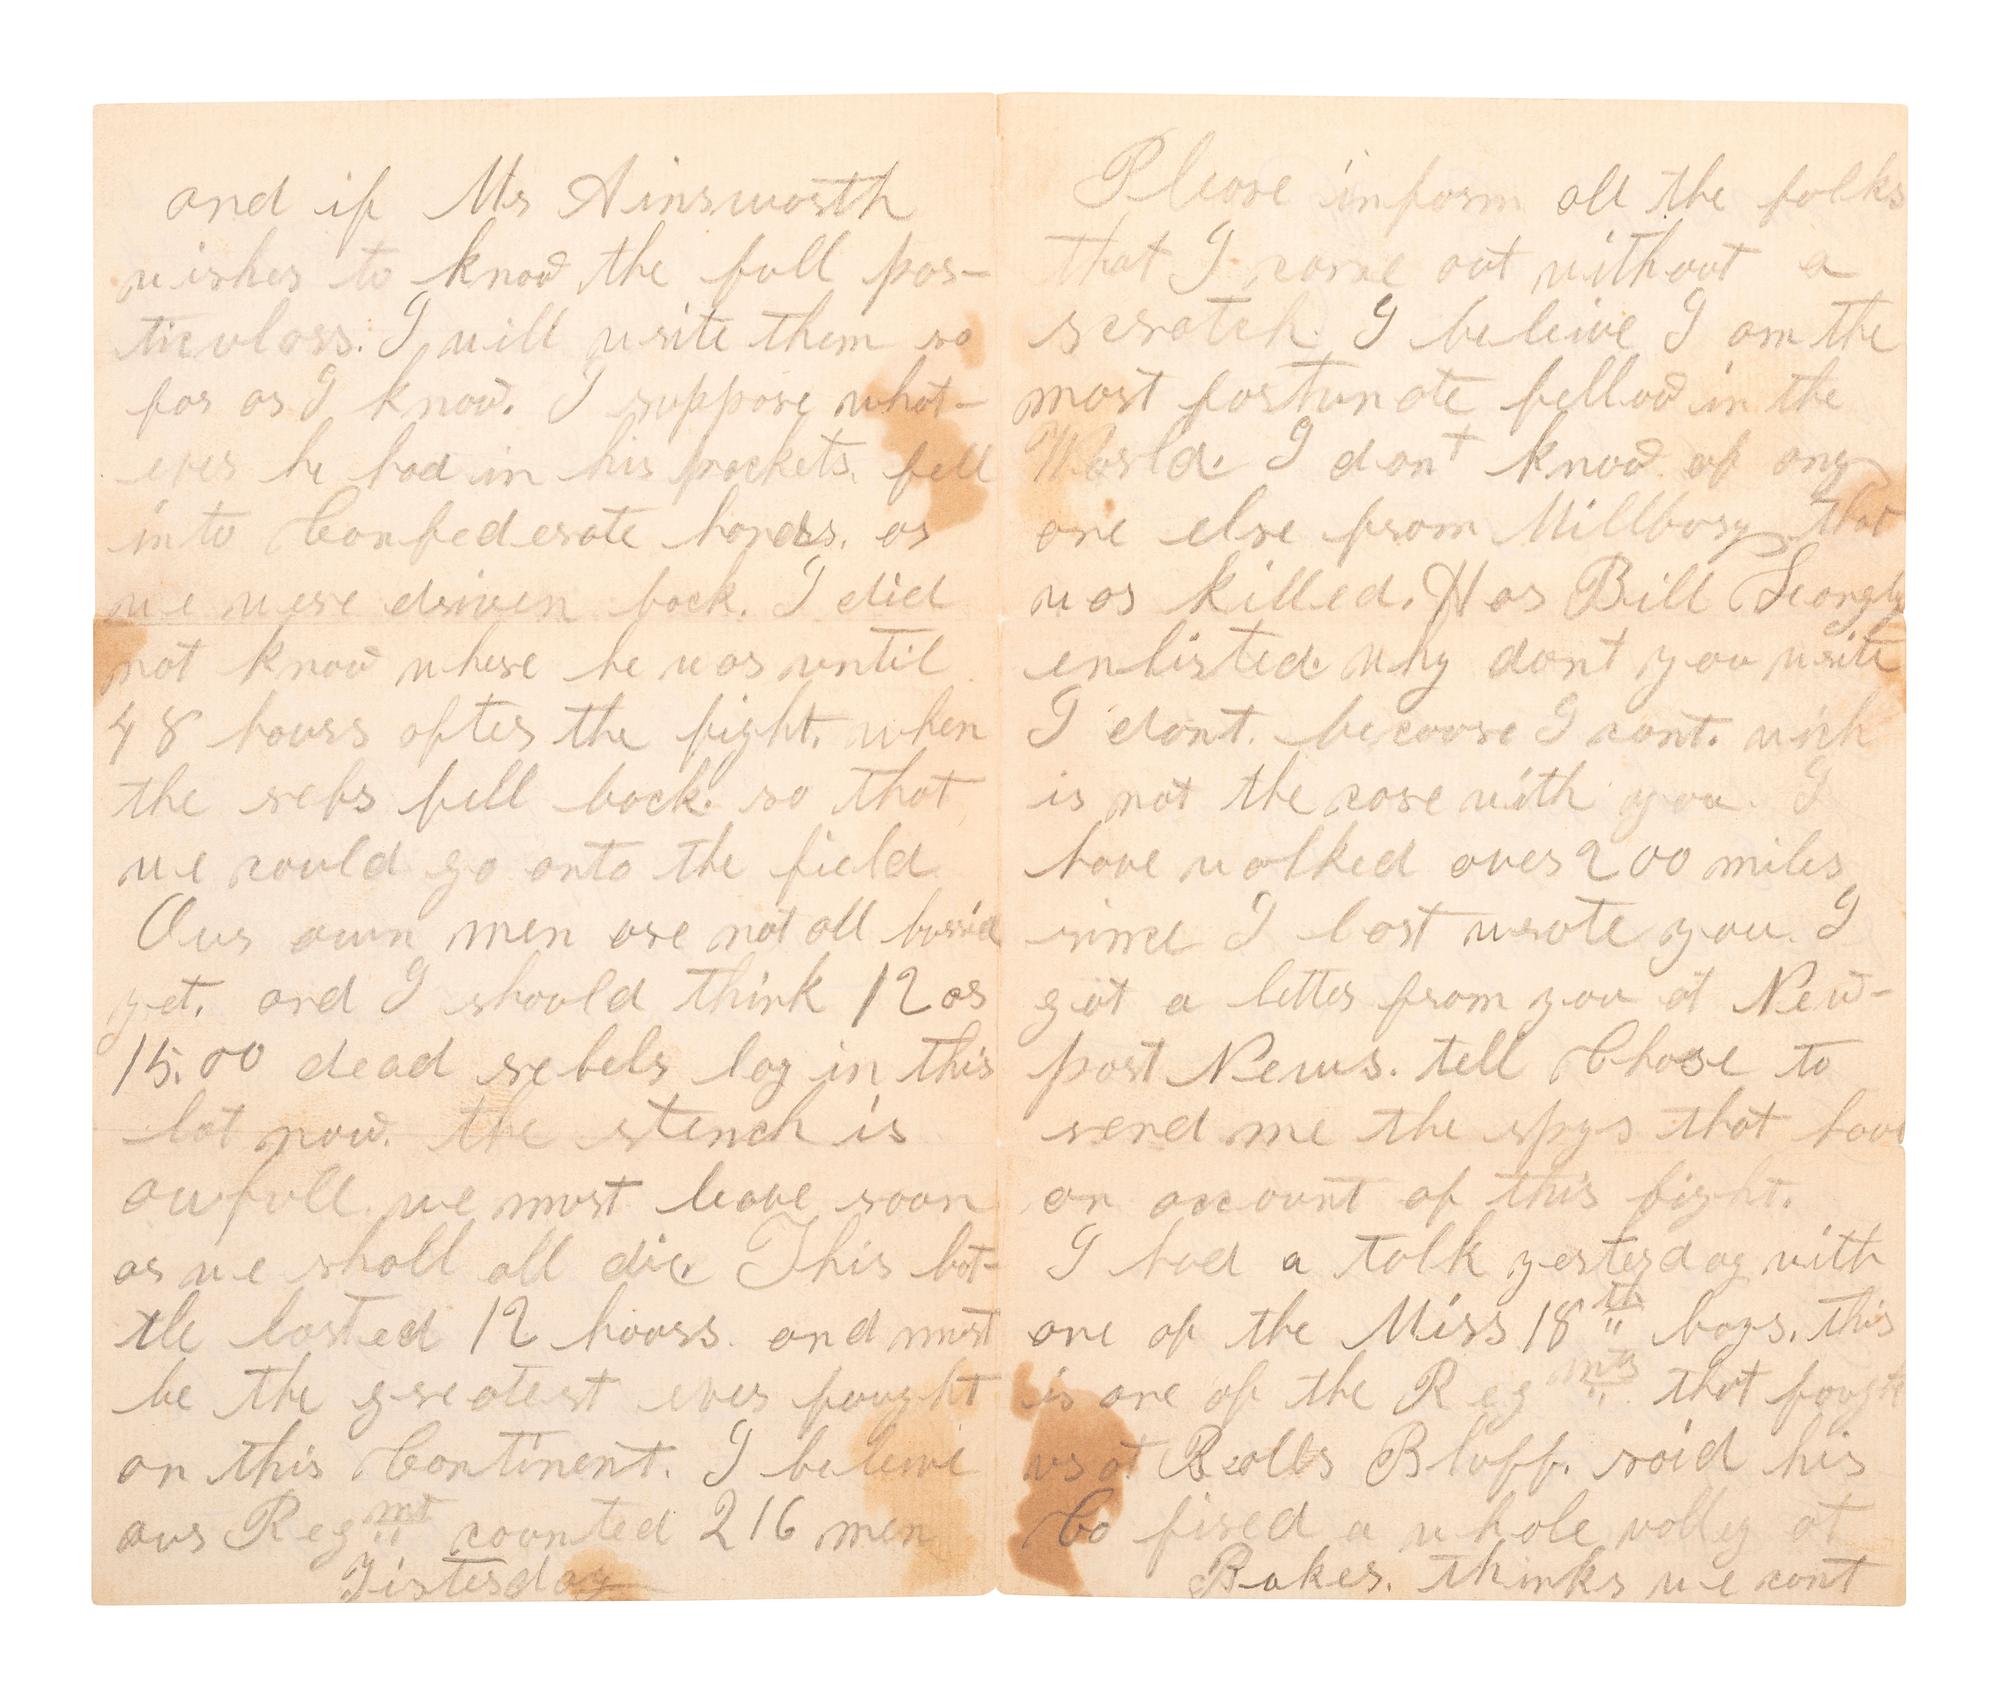 and if Mr Ainsworth
wishes to know the full par-
ticulars. I will write them so
far as I know. I suppose what-
ever he had in his pockets. fell
into Confederate hands. as
we were driven back. I did
not know where he was until
48 hours after the fight. when
the rebs fell back. so that
we could go onto the field
Our own men are not all burried
yet. and I should think 12 or
15.00 dead rebels lay in this
lot now. the stench is
awfull. we must leave soon
or we shall all die. This bat-
tle lasted 12 hours. and must
be the greatest ever fought
on this Continent. I beleive
our Regmt counted 216 men
Yisterday
Please inform all the folks
that I came out without a
scratch. I beleive I am the
most fortunate fellow in the
World. I don't know of any
one else from Millbury that
was killed. Has Bill
enlisted. why dont you write
I dont. because I cant. wich
is not the case with you. I
have walked over 200 miles
since I last wrote you. I
got a letter from you at New-
port News. tell Chase to
send me the spys that have
an account of this fight.
I had a talk yesterday with
one of the Miss 18th boys. this
is one of the Regmts that fought
us at Balls Bluff. said his
Co fired a whole volley at
Baker. thinks we cant